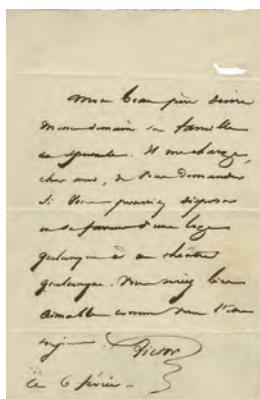 Mon beau père désire
mener demain sa famille
au spectacle. Il me charge,
cher ami, de vous demander
si vous pourriez disposer
en sa faveur d'une loge
quelconque à un théâtre
quelconque. Vous seriez bien
aimable comme vous l'êtes
toujours. Victor
Ce 6 février.